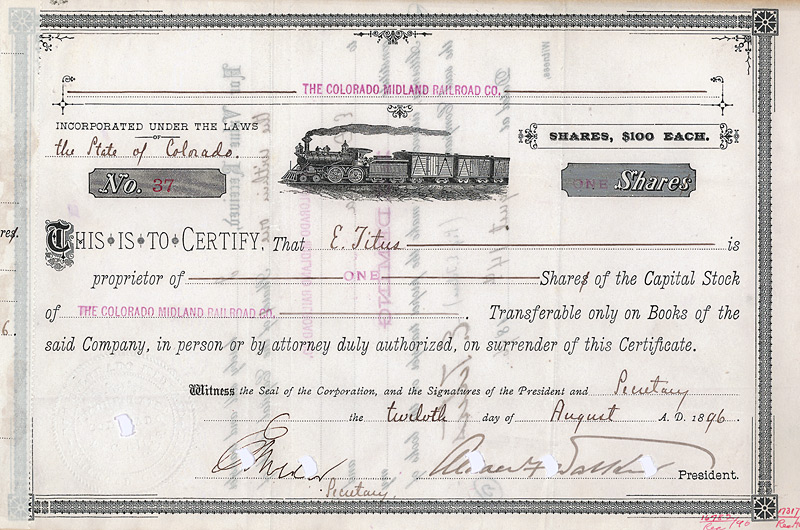 THE COLORADO MIDLAND RAILROAD CO.
INCORPORATED UNDER THE LAWS
OF
the State of Colorado.
SHARES, $100 EACH.
No. 37
ONE Shares
THIS IS TO CERTIFY, That E. Titus is
proprietor of ONE Shares of the Capital Stock
of THE COLORADO MIDLAND RAILROAD CO. Transferable only on Books of the
said Company, in person or by attorney duly authorized, on surrender of this Certificate.
Witness the Seal of the Corporation, and the Signatures of the President and Secretary
the twelvth day of August A. D. 1896
President.
Secretary.